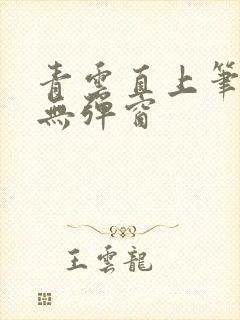 青雲直上筆
無彈窗
王雲龍